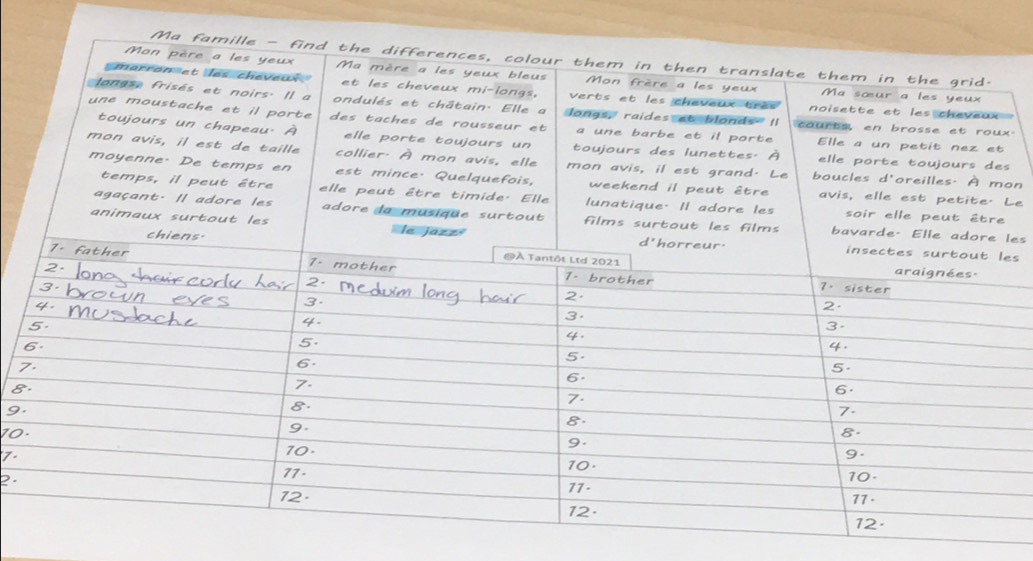 Ma famille - find the differences, colour them in then translate them in the grid.
Mon père a les yeux
marron et les cheveux
longs, frisés et noirs. Il a
une moustache et il porte
toujours un chapeau. À
mon avis, il est de taille
moyenne. De temps en
temps, il peut être
agaçant. Il adore les
animaux surtout les
chiens.
Ma mère a les yeux bleus
et les cheveux mi-longs,
ondulés et châtain. Elle a
des taches de rousseur et
elle porte toujours un
collier. À mon avis, elle
est mince. Quelquefois,
elle peut être timide. Elle
adore la musique surtout
le jazz.
Mon frère a les yeux
verts et les cheveux très
longs, raides et blonds. Il
a une barbe et il porte
toujours des lunettes. À
mon avis, il est grand. Le
weekend il peut être
lunatique. Il adore les
films surtout les films
d'horreur.
Ma sœur a les yeux
noisette et les cheveux
courts, en brosse et roux.
Elle a un petit nez et
elle porte toujours des
boucles d'oreilles. À mon
avis, elle est petite. Le
soir elle peut être
bavarde. Elle adore les
insectes surtout les
araignées.
@À Tantôt Ltd 2021
1. father
2. long hair corly hair
3. brown eyes
4. musdache
5.
6.
7.
8.
9.
10.
1.
2.
1. mother
2. meduim long hair
3.
4.
5.
6.
7.
8.
9.
10.
11.
12.
1. brother
2.
3.
4.
5.
6.
7.
8.
9.
10.
11.
12.
1. sister
2.
3.
4.
5.
6.
7.
8.
9.
10.
11.
12.